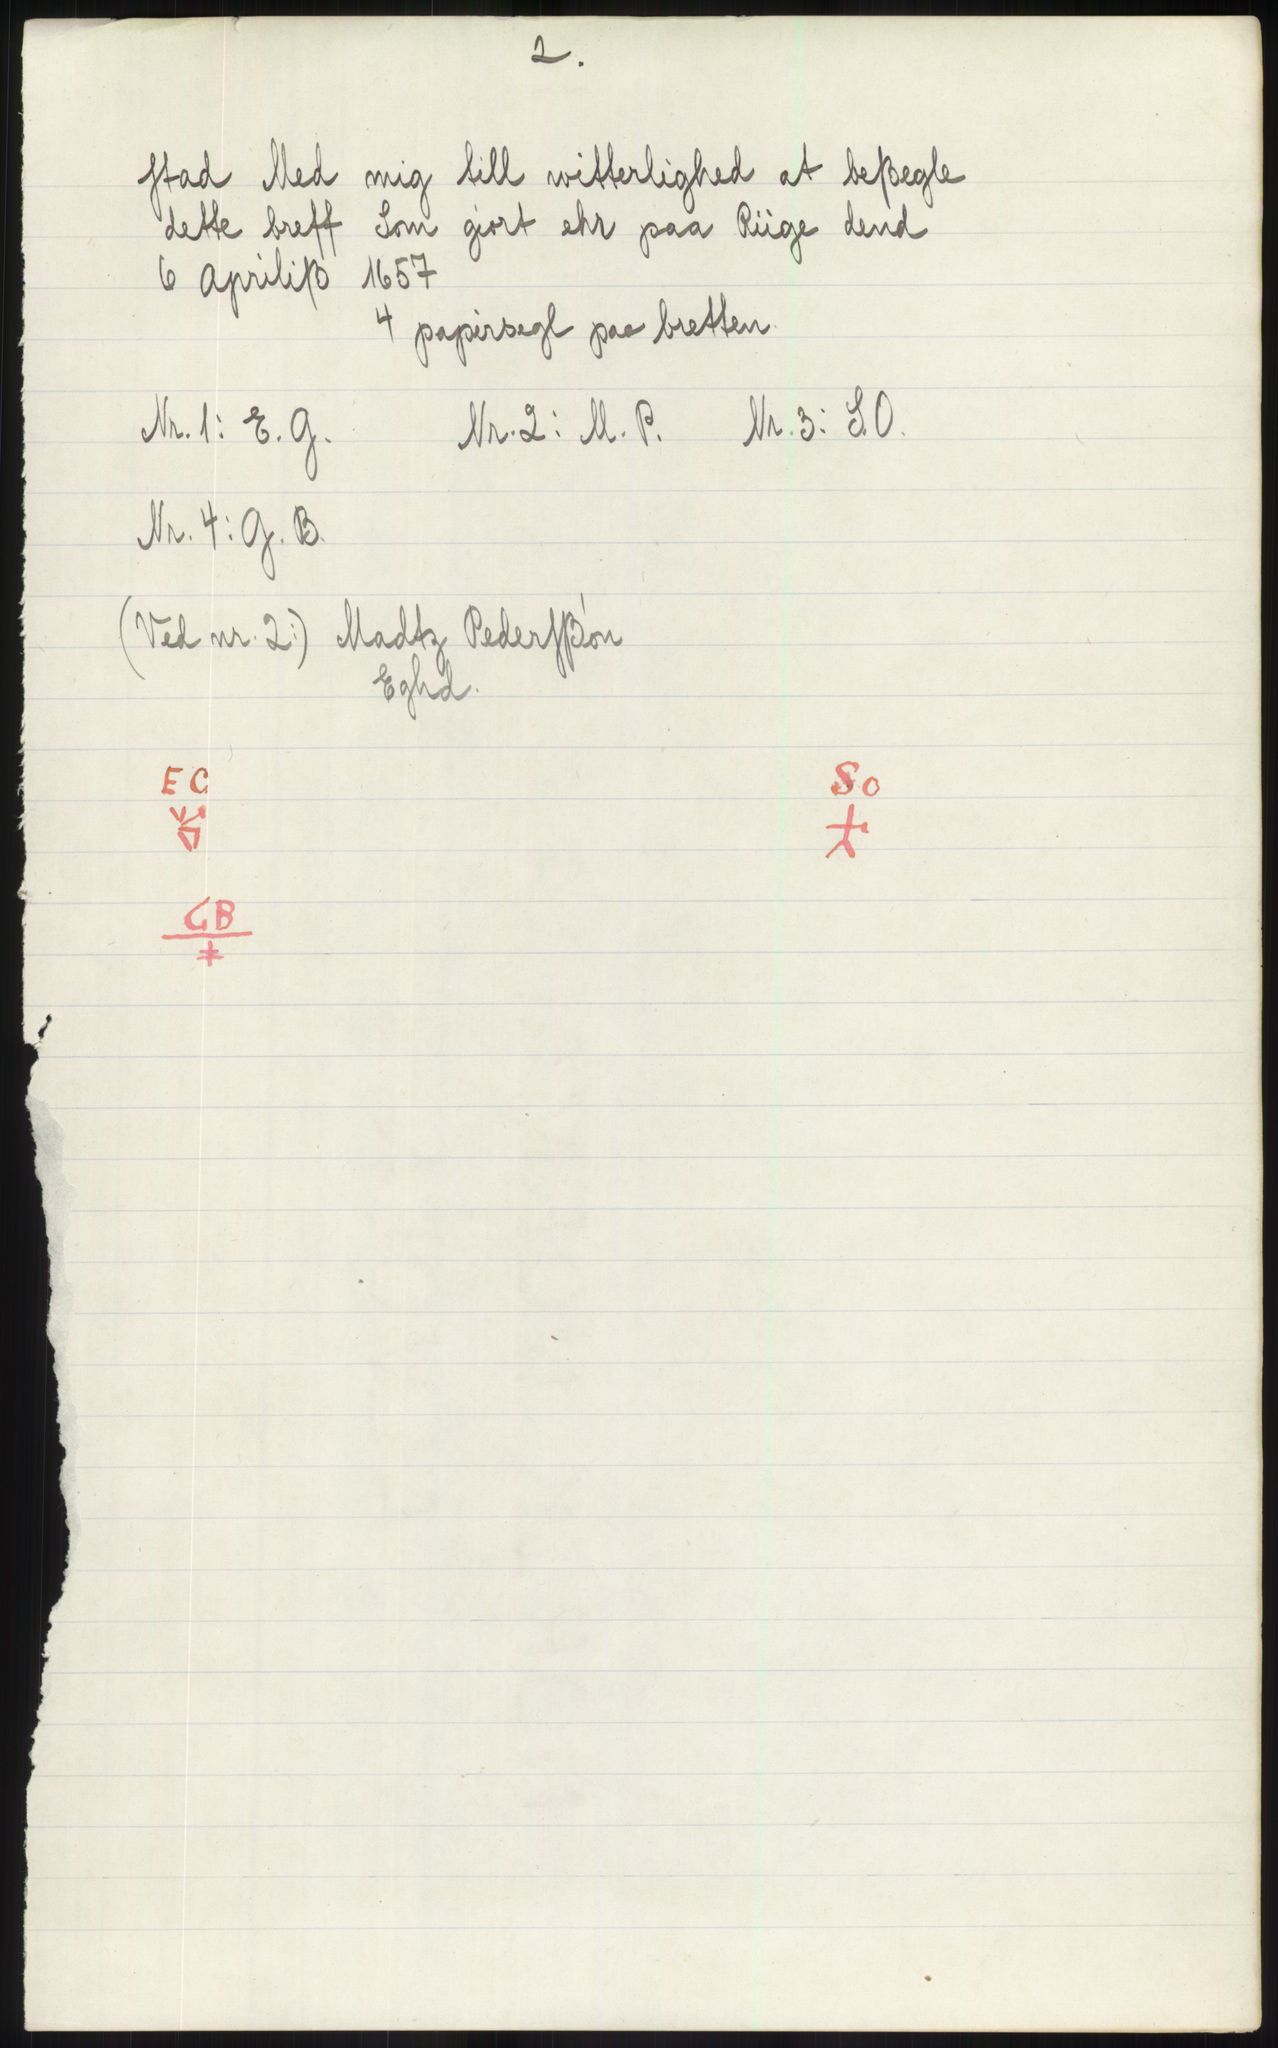 2.
stad Med mig till witterlighed at beßegle
dette breff Som giort ehr paa Riige dend
6 Apriliß 1657
4 papirsegl paa bretten.
Nr. 1: E. G. Nr. 2: M. P. Nr. 3: S.O.
Nr. 4: G. B.
(Ved nr. 2:) Madtz Pedersßón
Eghd.
E C S O
G B